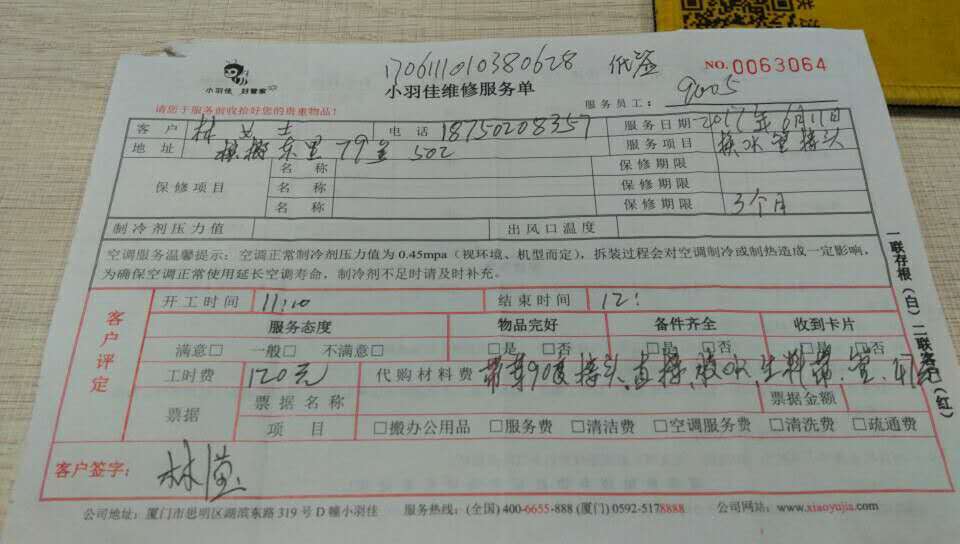 1706111010380628 代签
NO.0063064
小羽佳 好管家
小羽佳维修服务单
请您于服务前收拾好您的贵重物品!
服务员工: 9005
客户 林女士 电话 18750208357 服务日期 2017年6月11日
地址 东里79号502 服务项目 换水管接头
保修项目 名称 保修期限
名称 保修期限
名称 保修期限 3个月
制冷剂压力值 出风口温度
空调服务温馨提示: 空调正常制冷剂压力值为0.45mpa(视环境、机型而定),拆装过程会对空调制冷或制热造成一定影响,
为确保空调正常使用延长空调寿命,制冷剂不足时请及时补充。
一联存根(白)二联客户(红)
客户评定
开工时间 11:10 结束时间 12:
服务态度 物品完好 备件齐全 收到卡片
满意□ 一般□ 不满意□ □是 □否 □是 □否 □是 □否
工时费 120元 代购材料费 90度接头,直接,胶水,生料带,管
票据 票据名称 票据金额
项目 □搬办公用品 □服务费 □清洁费 □空调服务费 □清洗费 □疏通费
客户签字: 林莹
公司地址: 厦门市思明区湖滨东路319号D幢小羽佳 服务热线: (全国) 400-6655-888 (厦门) 0592-5178888 公司网站: www.xiaoyujia.com